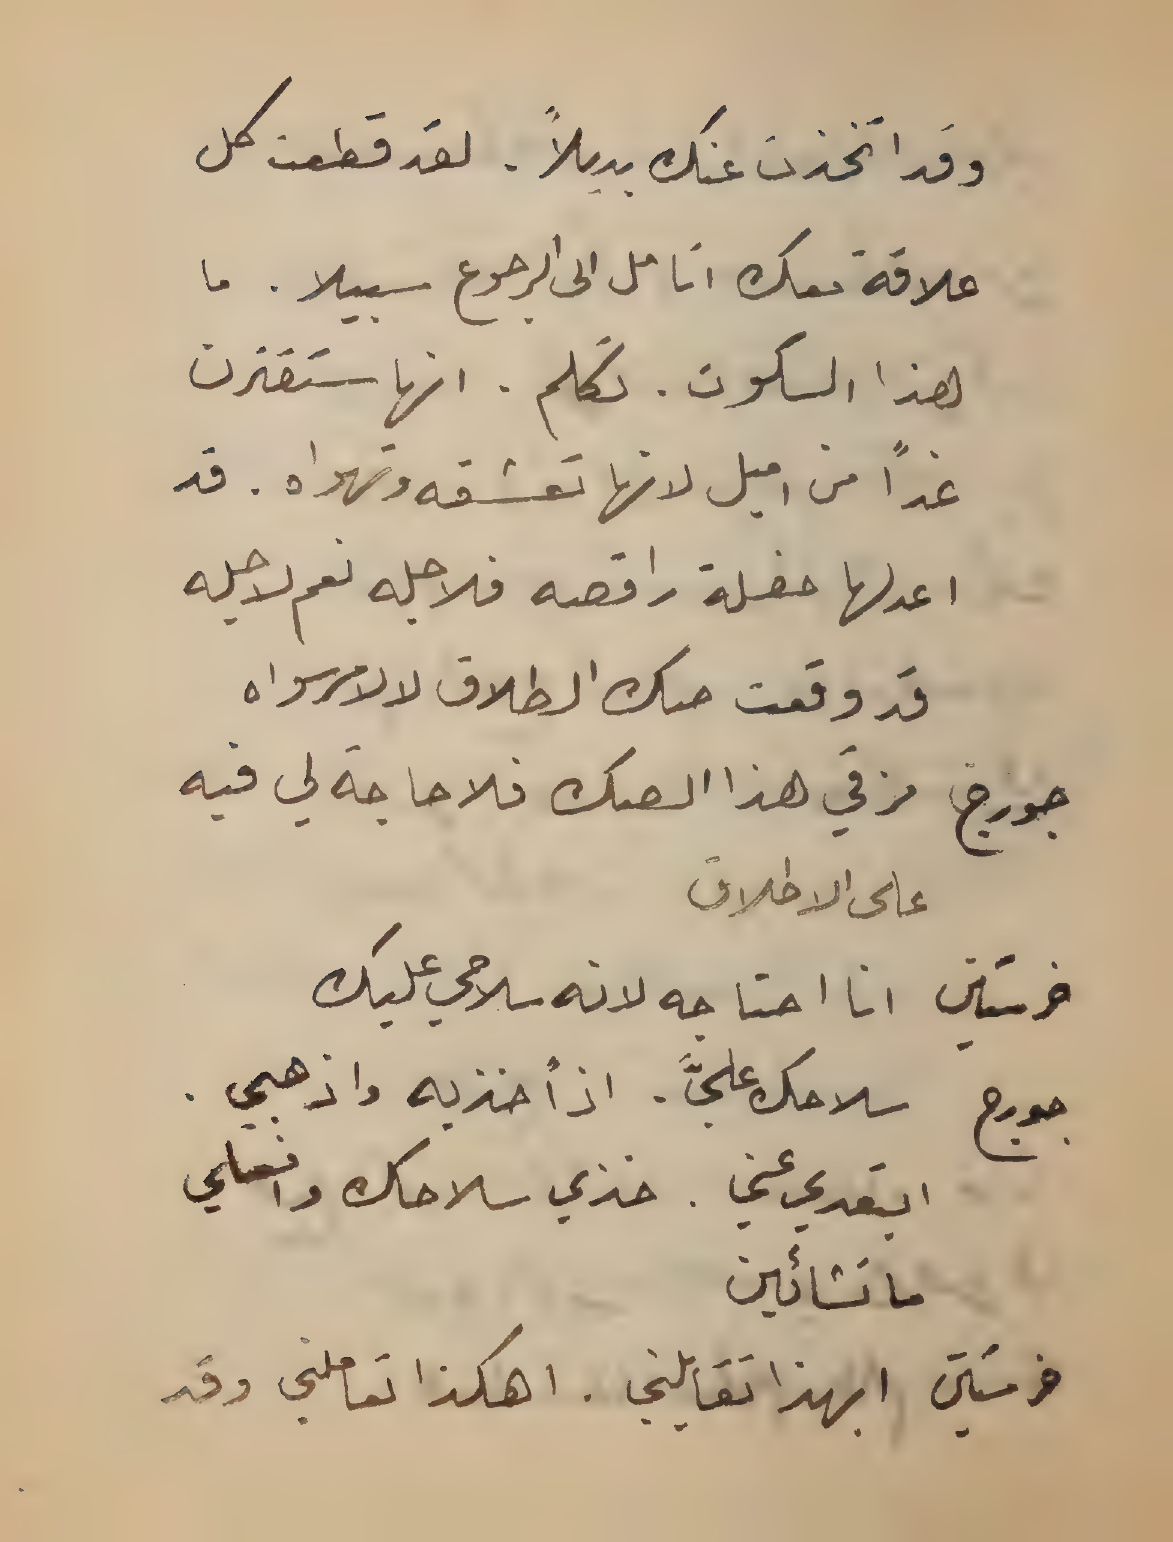 وقد اتخذت عنك بديلاً . لقد قطعت كل
علاقة معك اتامل الى الرجوع سبيلا . ما
هذا السكوت . تكلم . انها ستقترن
غداً من اميل لانها تعشقه وتهواه . قد
اعد لها حفلة راقصه فلاجله نعم لاجله
قد وقعت صك الطلاق لا لامر سواه
جورج مزقي هذا الصك فلا حاجة لي فيه
على الاطلاق
فرستين انا احتاجه لانه سلاحي عليك
جورج سلاحك عليَّ . اذاً خذيه واذهبي .
ابتعدي عني . خذي سلاحك وافعلي
ما تشائين
فرستين ابهذا تقابلني . اهكذا تعاملني وقد